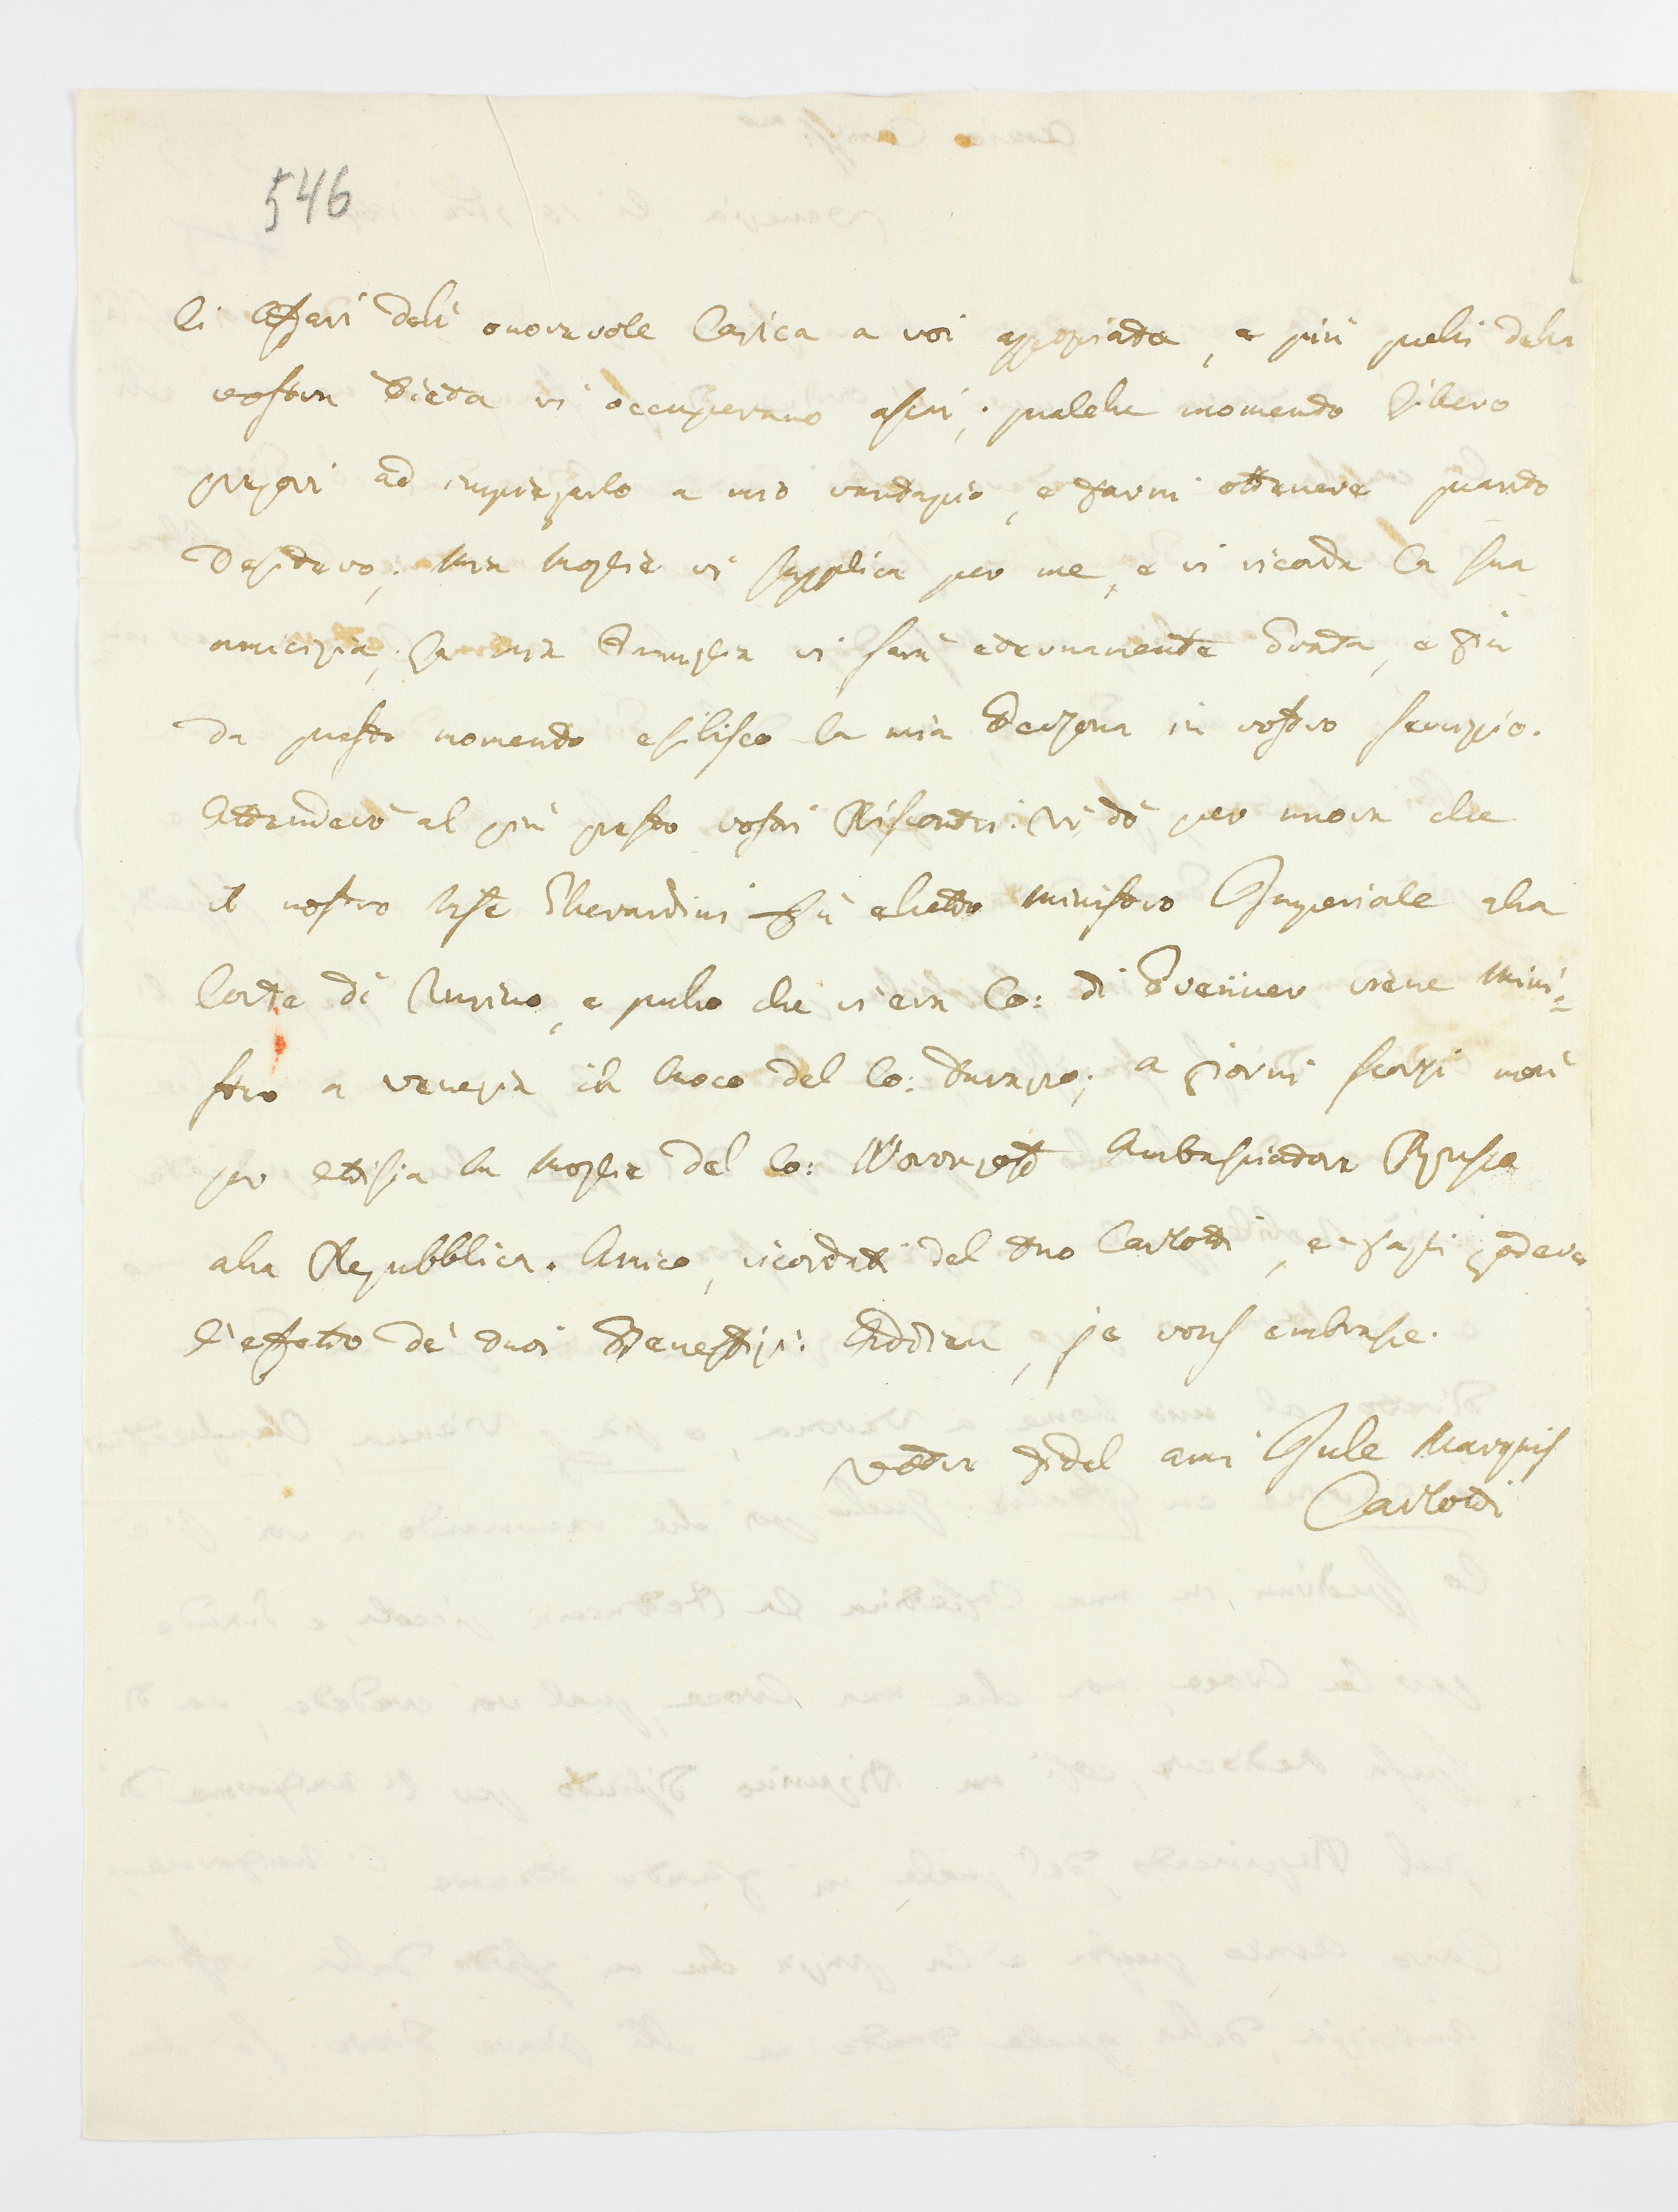 546
li Affari dell' onorevole Carica a voi appogiata, e più quelli della
vostra Dieta vi occuperano assai; qualche momento libero
pregovi ad impiegarlo a mio vantagio, e farmi ottenere quanto
desidero; Mia Moglie vi supplica per me, e vi ricorda la sua
amicizia; la mia Famiglia vi sarà eternamente Grata, e fin
da questo momento esibisco la mia Persona in vostro servizio.
Attenderò al più presto vostri Riscontri. Vi dò per nuova che
il nostro Mse Gherardini fù eletto Ministro Imperiale alla
Corte di Turino, e quello che vi era Co: di Breüner viene Mini=
stro a Venezia in luoco del Co: Durazzo; a giorni scorsi morì
per Ettisia la Moglie del Co: Woronzoff Ambasciatore Russo
alla Repubblica. Amico, ricordati del tuo Carlotti, e fagli godere
l'effetto de' tuoi Beneffizi. Addieu, je vous embrasse.
Votre fidel ami Jule Marquis
Carlotti